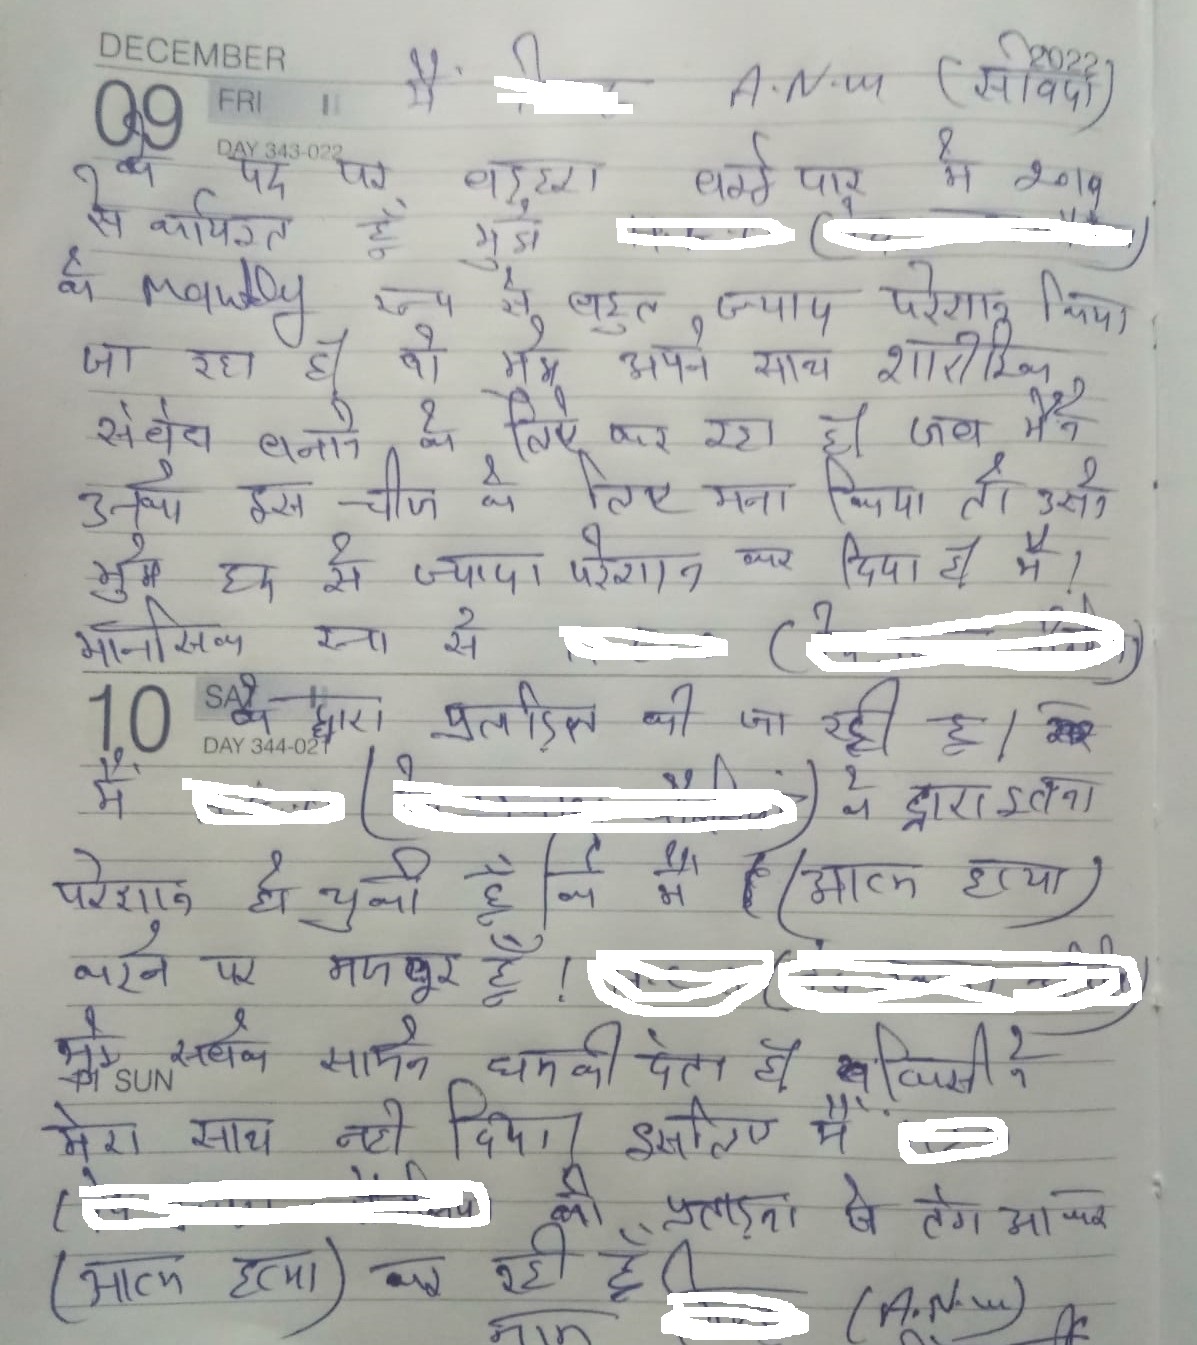 DECEMBER
2022
09 FRI
मैं A.N.M (संविदा)
DAY 343-022
के पद पर में 2019
से कार्यरत हूँ मुझे
के रूप से बहुत ज्यादा परेशान किया
जा रहा है वो मुझे अपने साथ शारीरिक
संबंध बनाने के लिए कर रहा है जब मैंने
उनको इस चीज के लिए मना किया तो उसने
मुझे हद से ज्यादा परेशान कर दिया है मैं।
मानसिक रूप से
10 SAT
के द्वारा प्रताड़ित की जा रही हूँ।
DAY 344-021
मैं के द्वारा इतना
परेशान हो चुकी हूँ कि मैं (आत्म हत्या)
करने पर मजबूर हूँ!
मुझे सबके सामने धमकी देता है किसी ने
11 SUN
मेरा साथ नहीं दिया इसलिए मैं
की प्रताड़ना से तंग आकर
(आत्म हत्या) कर रही हूँ।
नाम (A.N.M)